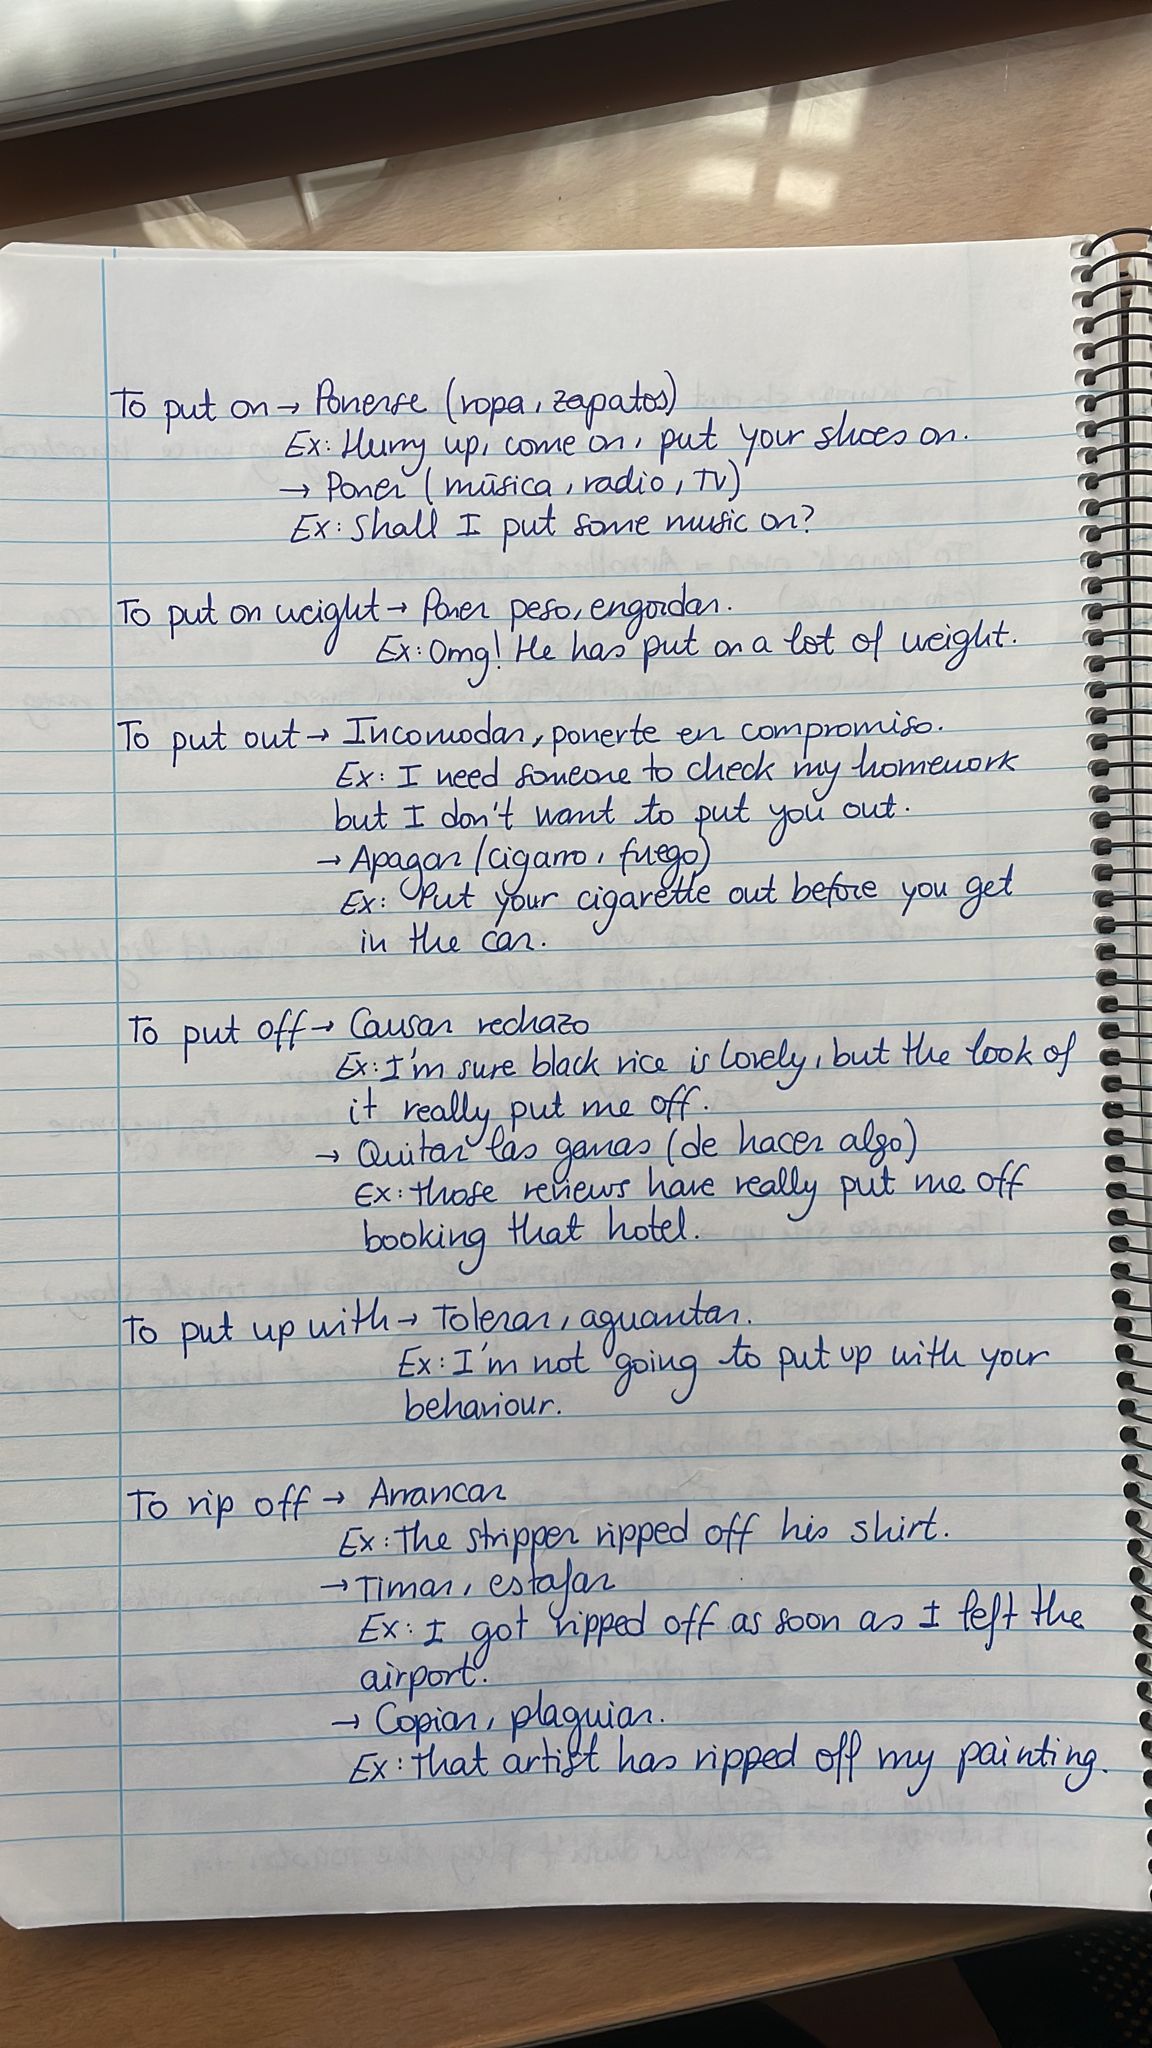 To put on → Ponerse (ropa, zapatos)
Ex: Hurry up, come on, put your shoes on.
→ Poner (música, radio, TV)
Ex: Shall I put some music on?
To put on weight → Poner peso, engordar.
Ex: Omg! He has put on a lot of weight.
To put out → Incomodar, ponerte en compromiso.
Ex: I need someone to check my homework
but I don't want to put you out.
→ Apagar (cigarro, fuego)
Ex: Put your cigarette out before you get
in the car.
To put off → Causar rechazo
Ex: I'm sure black rice is lovely, but the look of
it really put me off.
→ Quitar las ganas (de hacer algo)
Ex: those reviews have really put me off
booking that hotel.
To put up with → Tolerar, aguantar.
Ex: I'm not going to put up with your
behaviour.
To rip off → Arrancar
Ex: The stripper ripped off his shirt.
→ Timar, estafar
Ex: I got ripped off as soon as I left the
airport.
→ Copiar, plaguiar.
Ex: that artist has ripped off my painting.